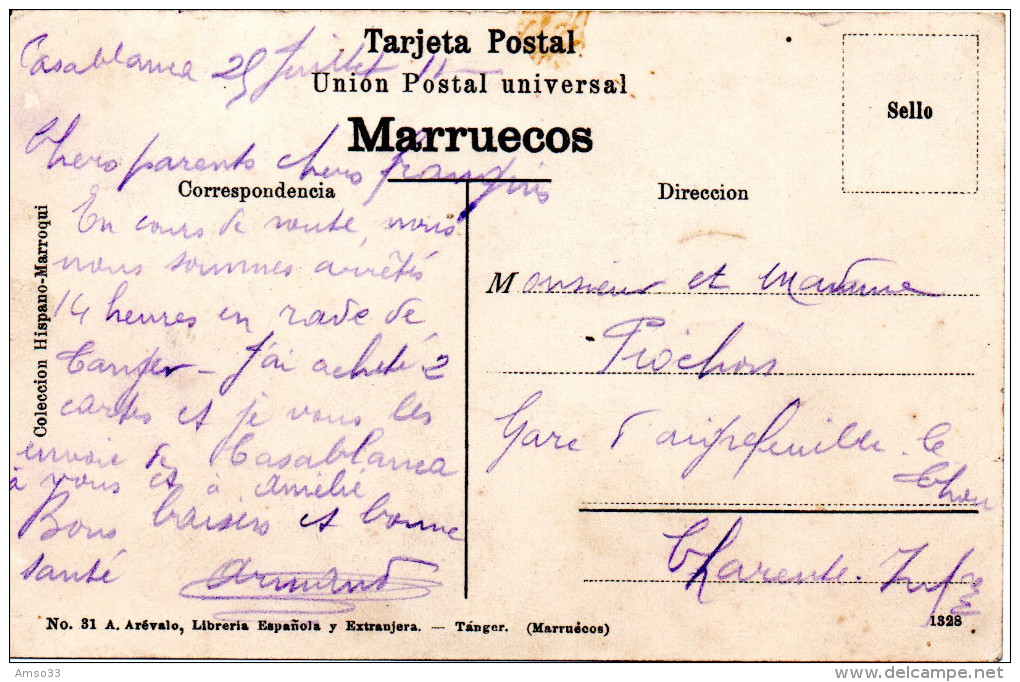 Tarjeta Postal
Union Postal universal
Marruecos
Sello
Casablanca 25 Juillet 11
Chers parents chers frangins
Correspondencia
Direccion
Coleccion Hispano-Marroqui
En cours de route, nous
nous sommes arrêtés
14 heures en rade de
Tanger - J'ai acheté 2
cartes et je vous les
envoie de Casablanca
à vous et à Amélie
Bons baisers et bonne
santé Armand
Monsieur et Madame
Piochon
Gare d'aigrefeuille-le
Thou
Charente-Infre
No. 31 A. Arévalo, Libreria Española y Extranjera. — Tánger. (Marruécos)
1328
Amso33
www.delcampe.net